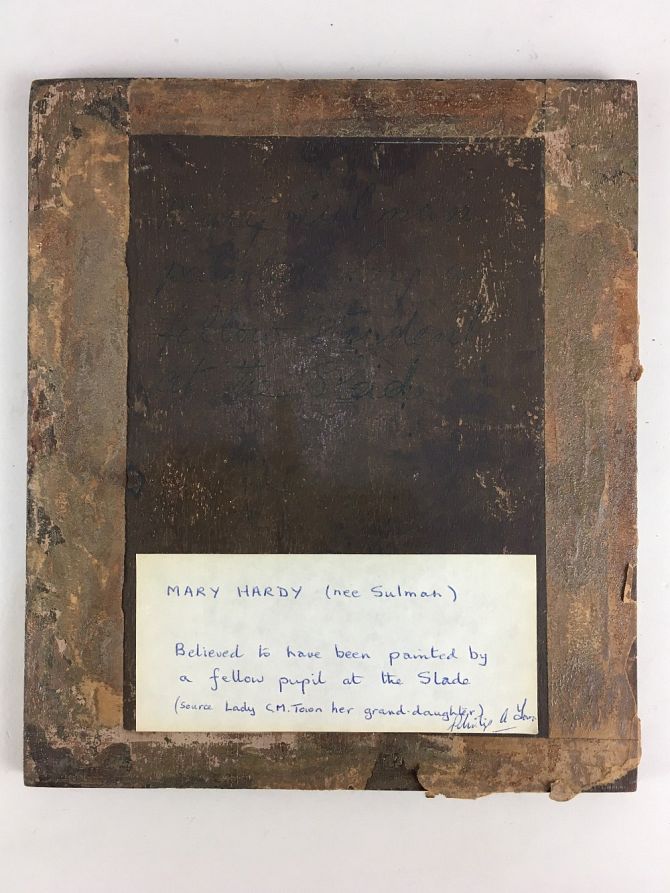 Mary Sulman
painted by a
fellow Student
at the Slade
MARY HARDY (nee Sulman)
Believed to have been painted by
a fellow pupil at the Slade
(Source Lady C.M. Town her grand-daughter)
A